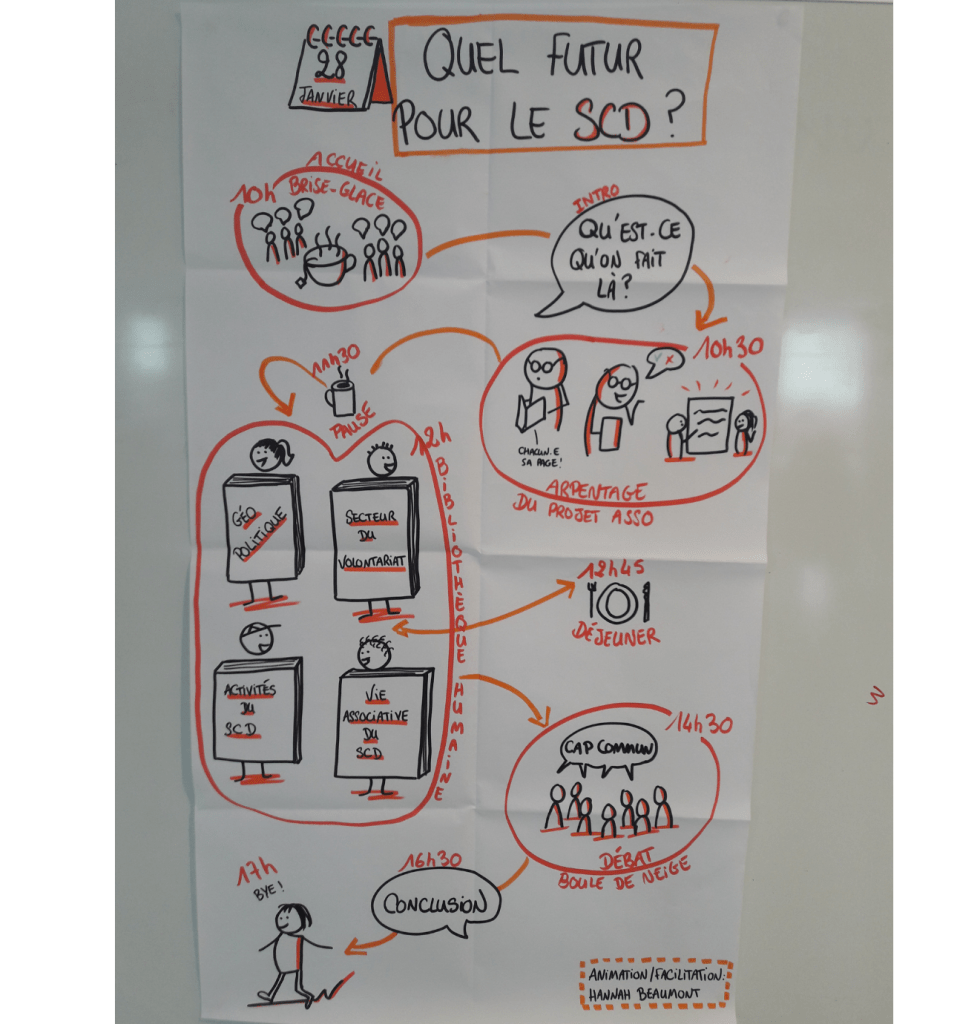 28
JANVIER
QUEL FUTUR
POUR LE SCD ?
ACCUEIL
BRISE-GLACE
10h
INTRO
QU'EST-CE
QU'ON FAIT
LÀ ?
10h30
CHACUN.E
SA PAGE !
ARPENTAGE
DU PROJET ASSO
11h30
PAUSE
12h
BIBLIOTHÈQUE HUMAINE
GÉO
POLITIQUE
SECTEUR
DU
VOLONTARIAT
ACTIVITÉS
DU
SCD
VIE
ASSOCIATIVE
DU
SCD
12h45
DÉJEUNER
14h30
CAP COMMUN
DÉBAT
BOULE DE NEIGE
16h30
CONCLUSION
17h
BYE !
ANIMATION/FACILITATION:
HANNAH BEAUMONT